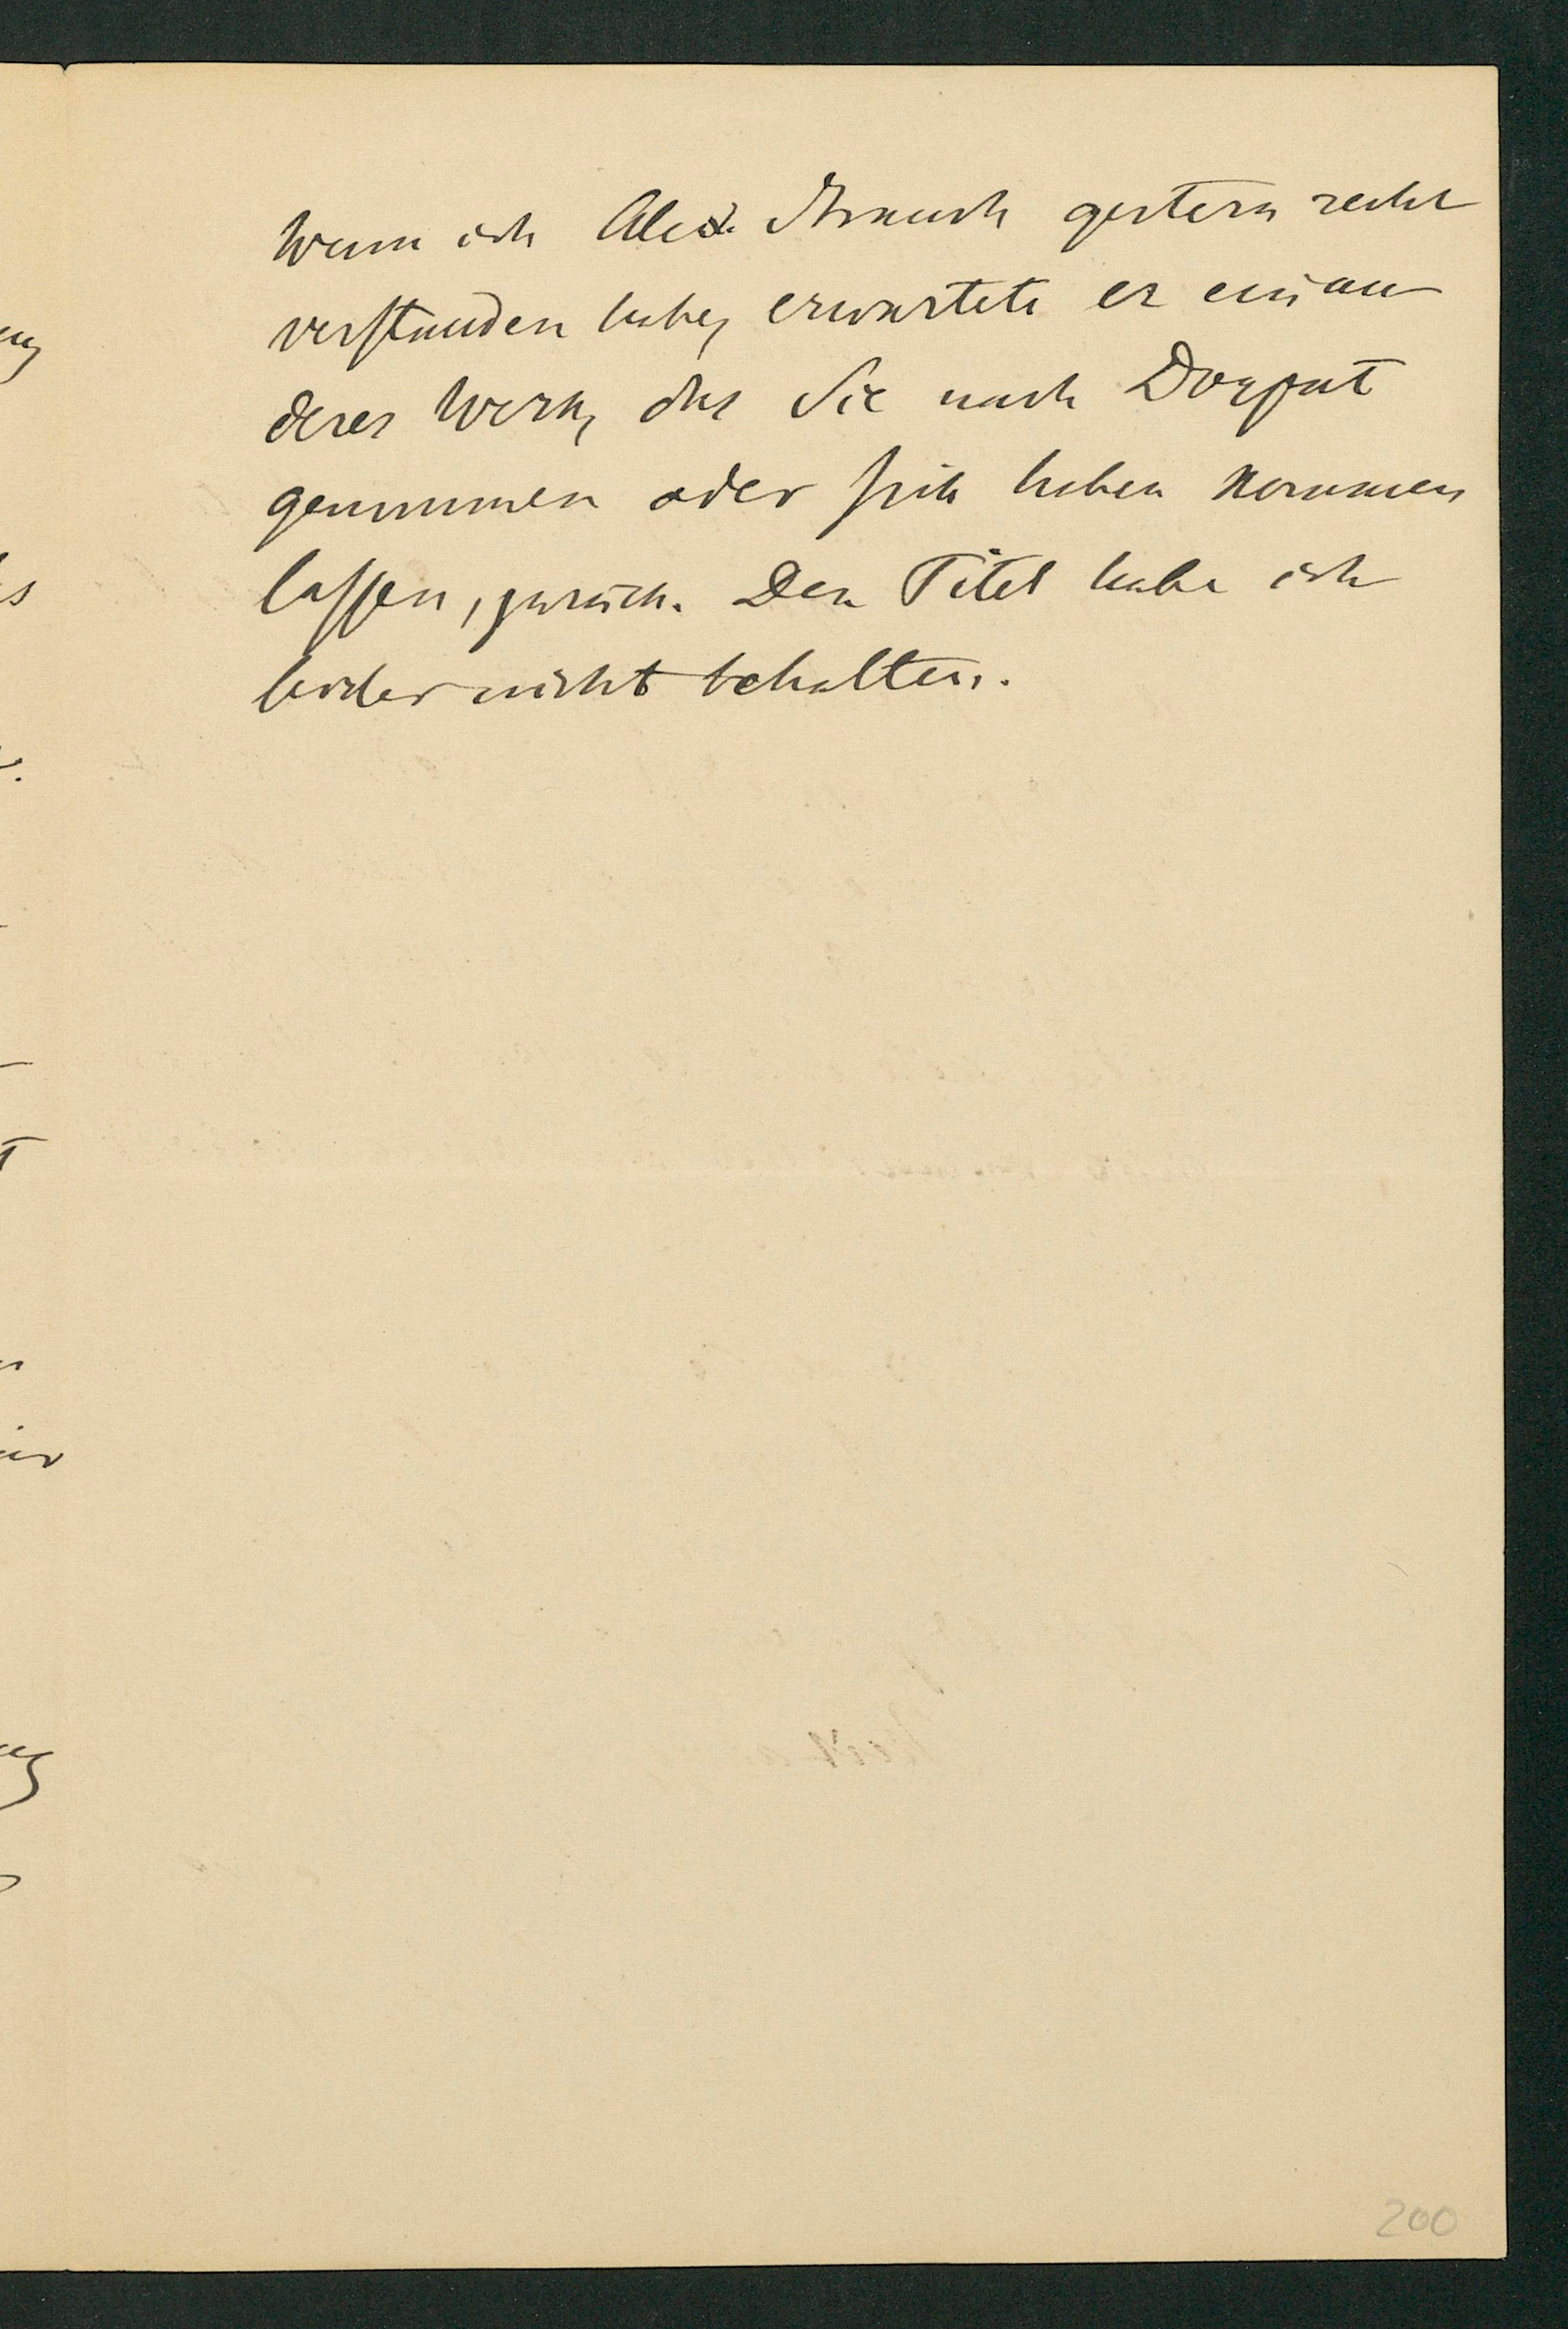 Wenn ich Alex. Strauch gestern recht
verstanden habe, erwartete er ein an
deres Werk, das Sie nach Dorpat
genommen oder sich haben kommen
lassen, zurück. Den Titel habe ich
leider nicht behalten.
200